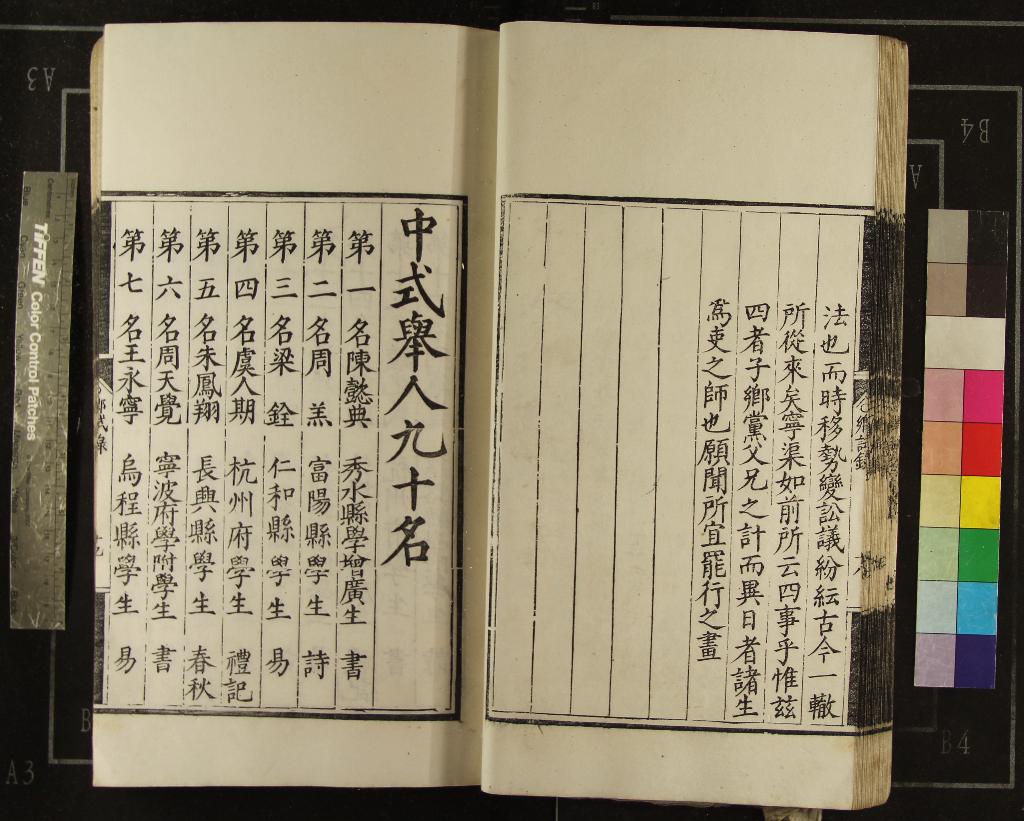 法也而時移勢變訟議紛紜古今一轍
所從來矣寧渠如前所云四事乎惟茲
四者子鄉黨父兄之計而異日者諸生
爲吏之師也願聞所宜罷行之畫
中式舉人九十名
第一名陳懿典 秀水縣學增廣生 書
第二名周 羔 富陽縣學生 詩
第三名梁 銓 仁和縣學生 易
第四名虞人期 杭州府學生 禮記
第五名朱鳳翔 長興縣學生 春秋
第六名周天覺 寧波府學附學生 書
第七名王永寧 烏程縣學生 易
TIFFEN Color Control Patches
A3
B4
A
B4
A3
B